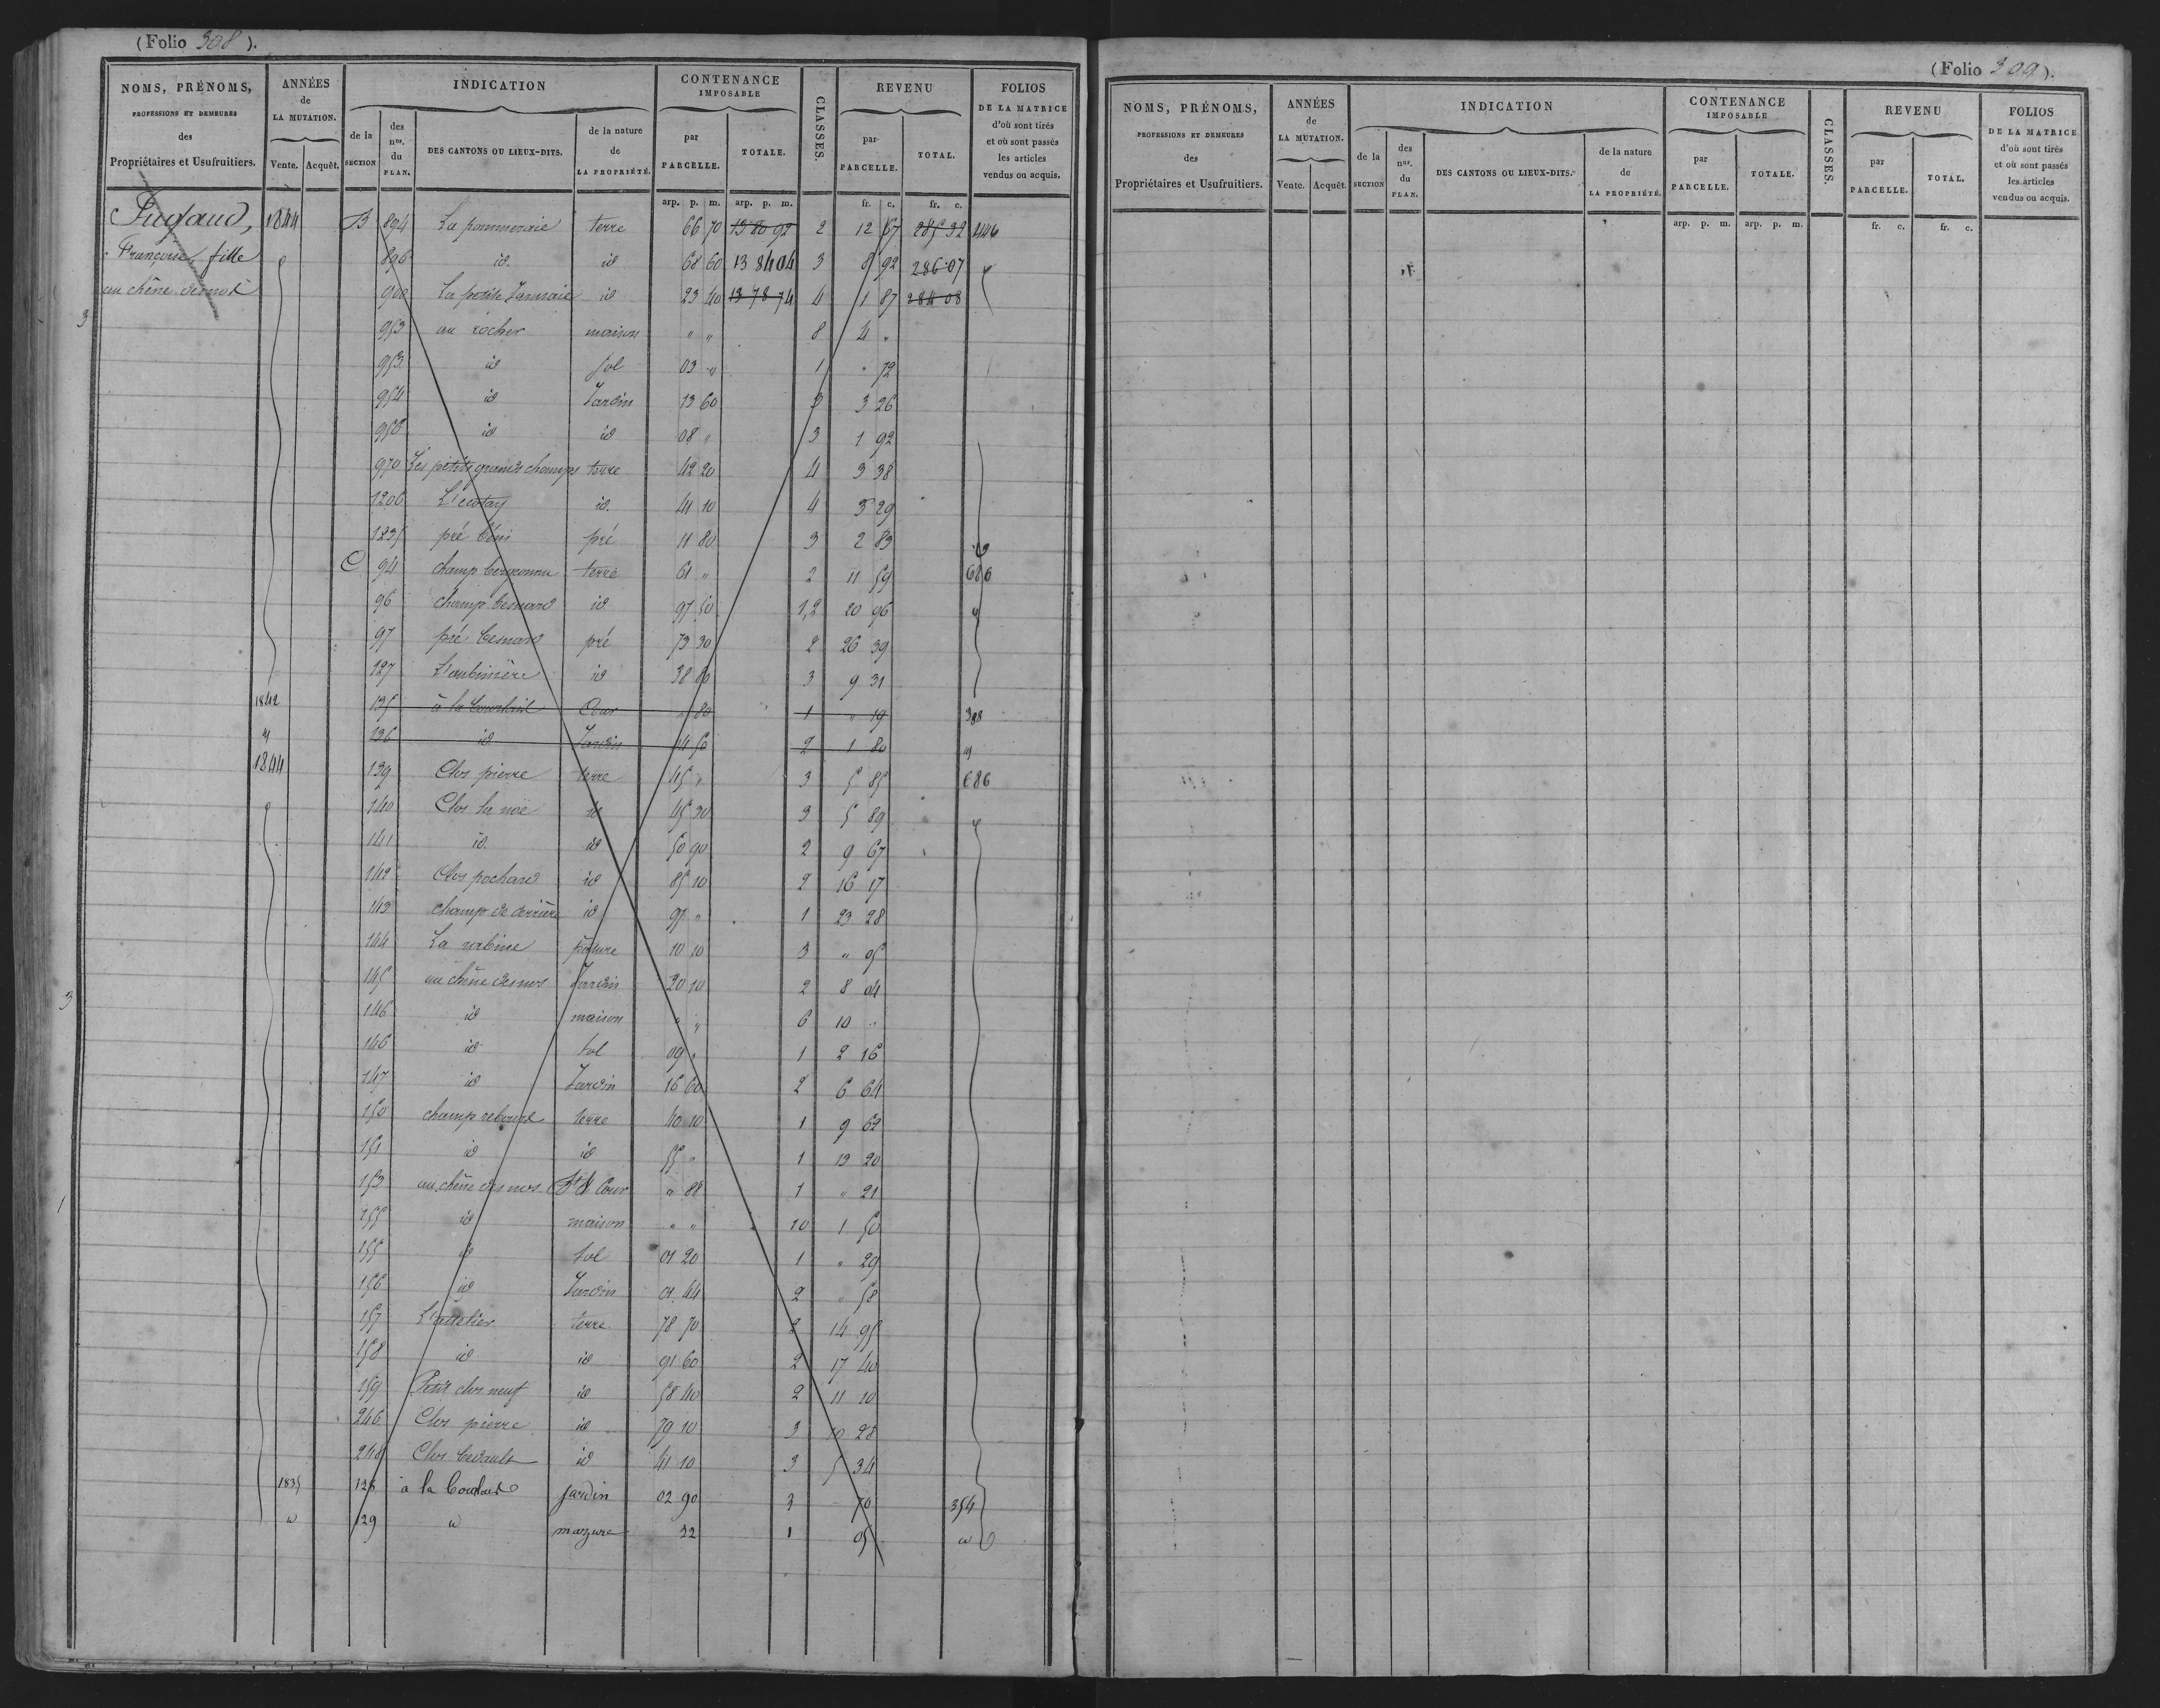 (Folio 308).
NOMS, PRÉNOMS, PROFESSIONS ET DEMEURES des Propriétaires et Usufruitiers.
ANNÉES de LA MUTATION. Vente. Acquêt.
INDICATION
de la SECTION
des nos. du PLAN.
DES CANTONS OU LIEUX-DITS.
de la nature de LA PROPRIÉTÉ.
CONTENANCE IMPOSABLE
par PARCELLE. TOTALE.
CLASSES.
REVENU
par PARCELLE. TOTAL.
FOLIOS DE LA MATRICE d'où sont tirés et où sont passés les articles vendus ou acquis.
arp. p. m. arp. p. m. fr. c. fr. c.
Françoise fille
au chêne
1844 B 894 La pommeraie terre 66 70 13 80 92 2 12 67 285 32 446
896 id. id 68 60 13 84 04 3 8 92 286 07
900 La petite id 23 40 13 78 74 4 1 87 284 08
953 au rocher maison " " 8 4 "
953 id sol 03 " 1 " 72
954 id Jardin 13 60 3 3 26
id id 08 " 3 1 92
970 Les petits grands champs terre 42 20 4 3 38
1206 id. 41 10 4 3 29
1235 pré pré 11 80 3 2 83
C 94 champ terre 61 " 2 11 59 686
96 champ besnard id 97 50 1,2 20 96
97 pré besnard pré 73 30 2 26 39
127 L'aubinière id 38 80 3 9 31
1842 135 à la Cour " 80 1 " 19 388
" 136 id Jardin 2 1 80 "
1844 139 Clos pierre terre 45 " 3 5 85 686
140 Clos la noë id 45 30 3 5 89
141 id. id 50 90 2 9 67
142 Clos pochard id 85 10 2 16 17
143 champ de derrière id 97 " 1 23 28
144 La rabine pature 10 10 3 " 95
145 au chêne Jardin 20 10 2 8 04
146 id maison " " 6 10 "
146 id sol 09 " 1 2 16
147 id Jardin 16 60 2 6 64
150 champ terre 40 10 1 9 62
151 id id 55 " 1 13 20
153 au chêne Cour " 88 1 " 21
155 id maison " " 10 1 50
155 id sol 01 20 1 " 29
156 id Jardin 01 44 2 " 58
157 L'attelier terre 78 70 2 14 95
158 id id 91 60 2 17 40
159 Petit clos neuf id 58 40 2 11 10
246 Clos pierre id 79 10 3 10 28
248 Clos id 41 10 3 5 34
1835 128 à la jardin 02 90 3 70 354
" 129 " mazure 22 1 05 "
(Folio 309).
NOMS, PRÉNOMS, PROFESSIONS ET DEMEURES des Propriétaires et Usufruitiers.
ANNÉES de LA MUTATION. Vente. Acquêt.
INDICATION
de la SECTION
des nos. du PLAN.
DES CANTONS OU LIEUX-DITS.
de la nature de LA PROPRIÉTÉ.
CONTENANCE IMPOSABLE
par PARCELLE. TOTALE.
CLASSES.
REVENU
par PARCELLE. TOTAL.
FOLIOS DE LA MATRICE d'où sont tirés et où sont passés les articles vendus ou acquis.
arp. p. m. arp. p. m. fr. c. fr. c.